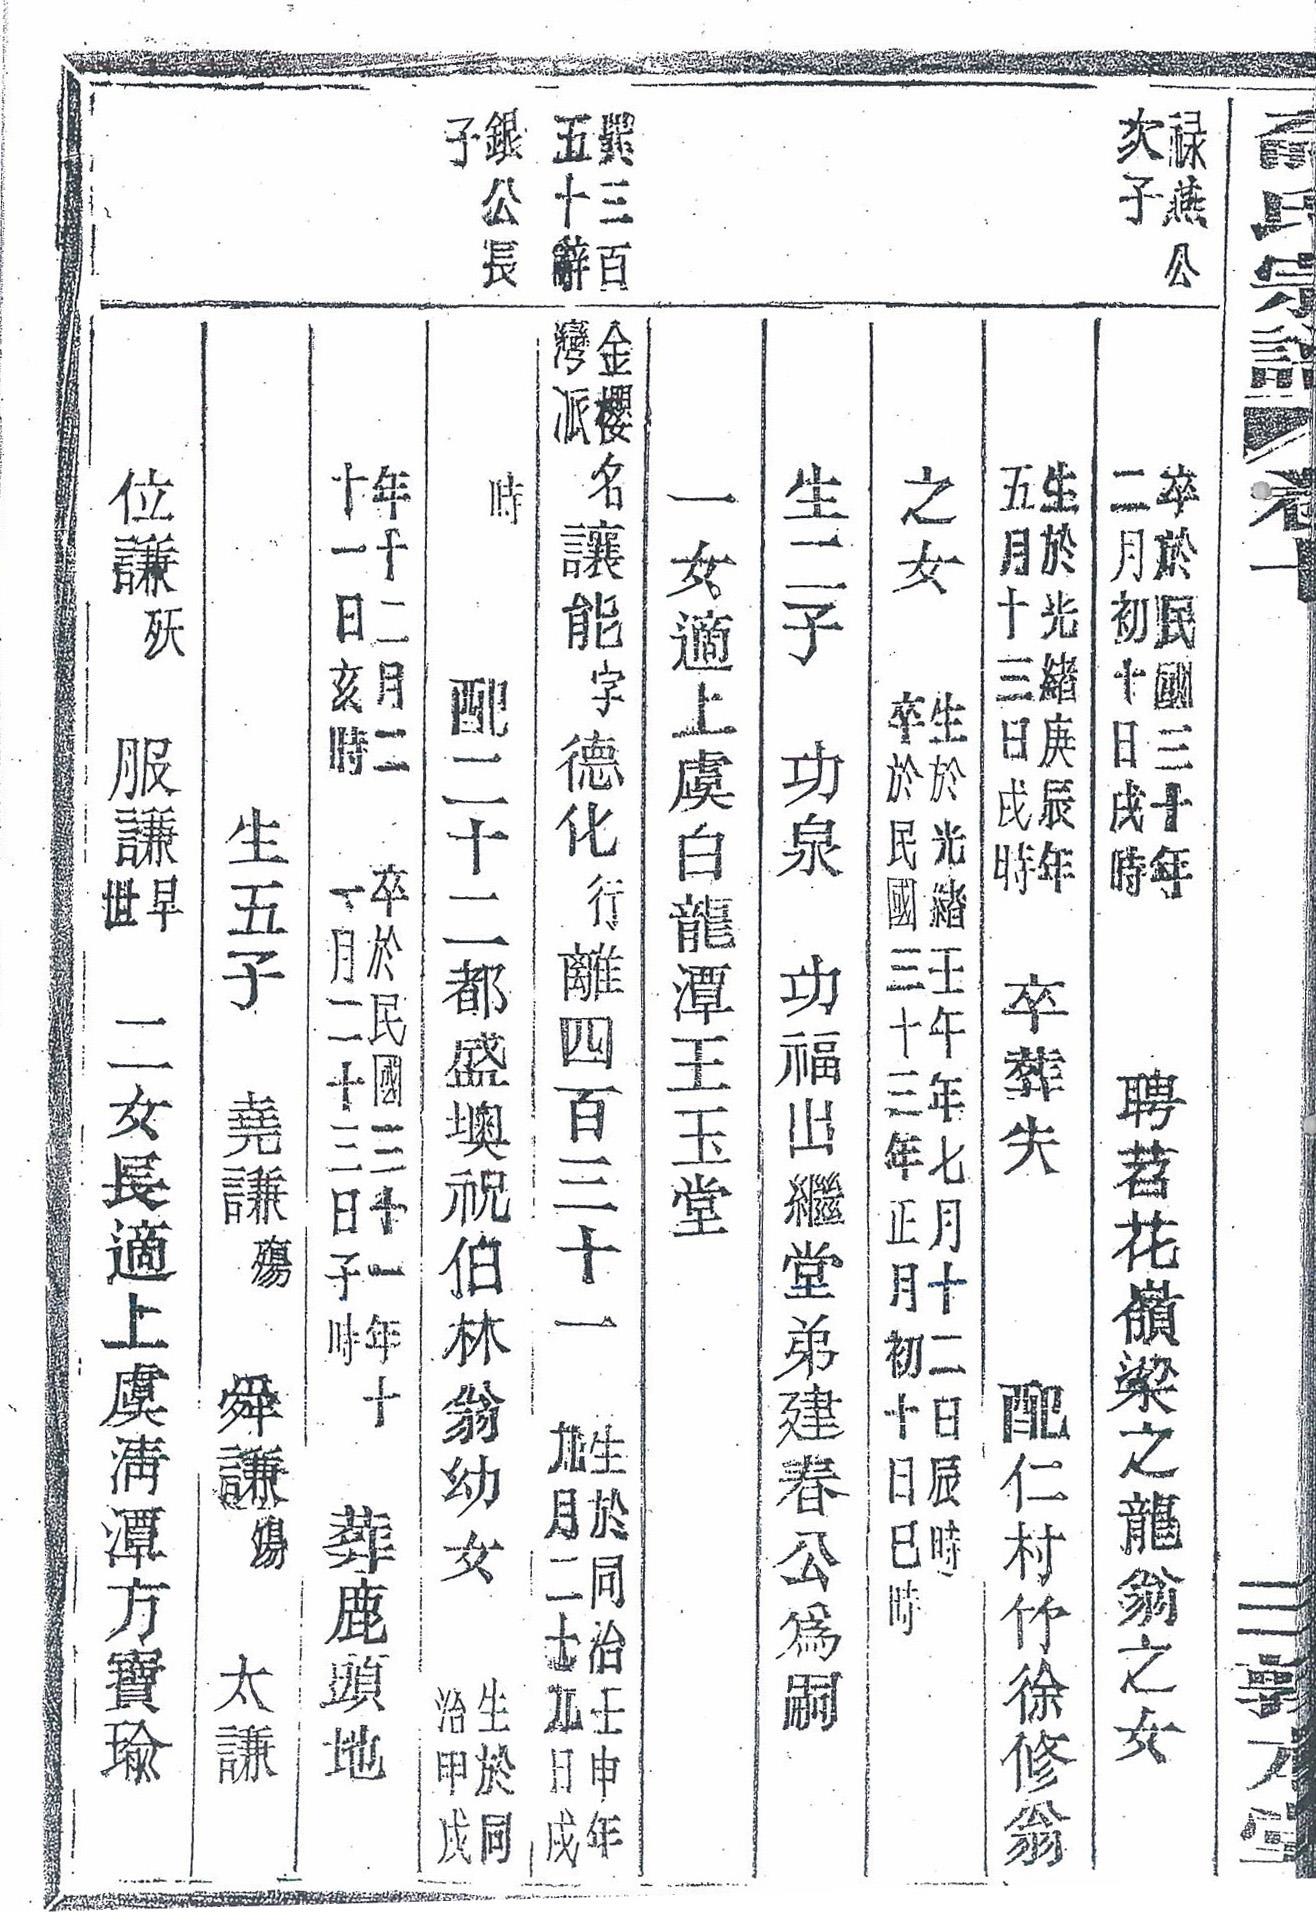 俞氏宗譜 卷十一 三 敦本堂
祿燕公
次子
卒於民國三十年
二月初十日戌時
聘苕花嶺梁之龍翁之女
生於光緒庚辰年
五月十三日戌時
卒葬失 配仁村竹徐修翁
之女
生於光緒壬午年七月十二日辰時
卒於民國三十三年正月初十日巳時
生二子 功泉 功福出繼堂弟建春公爲嗣
一女適上虞白龍潭王玉堂
巽三百
五十辭
銀公長
子
金櫻
灣派
名讓能字德化行離四百三十一
生於同治壬申年
九月二十九日戌
時
配二十二都盛墺祝伯林翁幼女
生於同
治甲戌
年十二月二
十一日亥時
卒於民國三十一年十
一月二十三日子時
葬鹿頭地
生五子 堯謙殤 舜謙殤 太謙
位謙殀 服謙早世 二女長適上虞淸潭方寶瑜